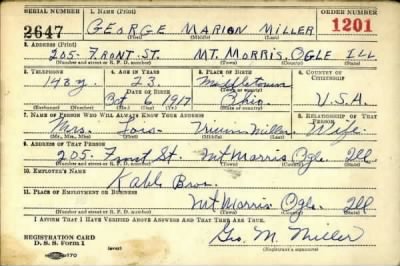 SERIAL NUMBER 1. NAME (Print) ORDER NUMBER
2647 GEORGE MARION MILLER 1201
(First) (Middle) (Last)
2. ADDRESS (Print)
205- FRONT-ST. MT. MORRIS, OGLE ILL
(Number and street or R. F. D. number) (Town) (County) (State)
3. TELEPHONE 4. AGE IN YEARS 5. PLACE OF BIRTH 6. COUNTRY OF CITIZENSHIP
148 23 Middletown
DATE OF BIRTH
Oct 6 1917 Ohio U.S.A.
(Exchange) (Number) (Mo.) (Day) (Yr.) (Town or county) (State or country)
7. NAME OF PERSON WHO WILL ALWAYS KNOW YOUR ADDRESS 8. RELATIONSHIP OF THAT PERSON
Mrs. Miller Wife
(Mr., Mrs., Miss) (First) (Middle) (Last)
9. ADDRESS OF THAT PERSON
205- Front St. Mt Morris Ogle. Ill.
(Number and street or R. F. D. number) (Town) (County) (State)
10. EMPLOYER'S NAME
Kable Bros.
11. PLACE OF EMPLOYMENT OR BUSINESS
Mt Morris Ogle. Ill
(Number and street or R. F. D. number) (Town) (County) (State)
I AFFIRM THAT I HAVE VERIFIED ABOVE ANSWERS AND THAT THEY ARE TRUE.
REGISTRATION CARD
D. S. S. Form 1 (over) Geo. M. Miller
(Registrant's signature)